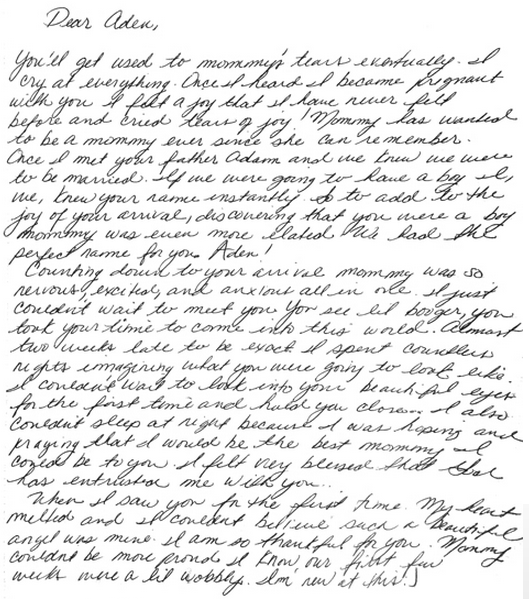 Dear Aden,
You'll get used to mommy's tears eventually. I
cry at everything. Once I heard I became pregnant
with you I felt a joy that I have never felt
before and cried tears of joy! Mommy has wanted
to be a mommy ever since she can remember.
Once I met your father Adam and we knew we were
to be married. If we were going to have a boy I,
we, knew your name instantly. So to add to the
joy of your arrival, discovering that you were a boy
mommy was even more elated We had the
perfect name for you. Aden!
Counting down to your arrival mommy was so
nervous, excited, and anxious all in one. I just
couldn't wait to meet you. You see lil booger, you
took your time to come into this world. Almost
two weeks late to be exact. I spent countless
nights imagining what you were going to look like.
I couldn't wait to look into your beautiful eyes
for the first time and hold you close. I also
couldn't sleep at night because I was hoping and
praying that I would be the best mommy I
could be to you. I felt very blessed that God
has entrusted me with you..
When I saw you for the first time. My heart
melted and I couldn't believe such a beautiful
angel was mine. I am so thankful for you. Mommy
couldn't be more proud. I know our first few
weeks were a lil wobbly. I'm new at this!